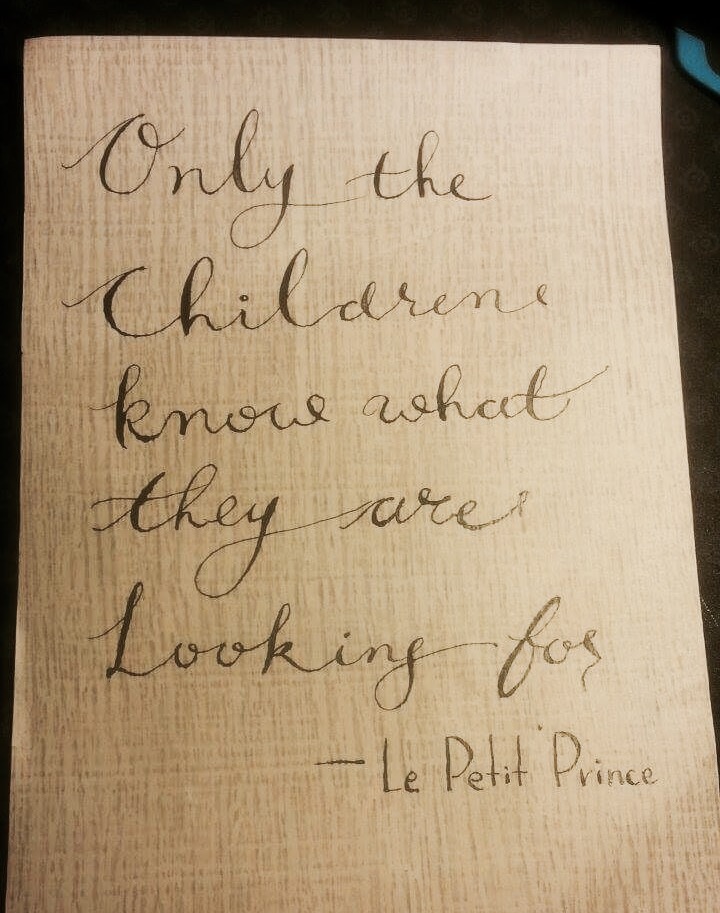 Only the
Children
know what
they are
Looking for
— Le Petit Prince